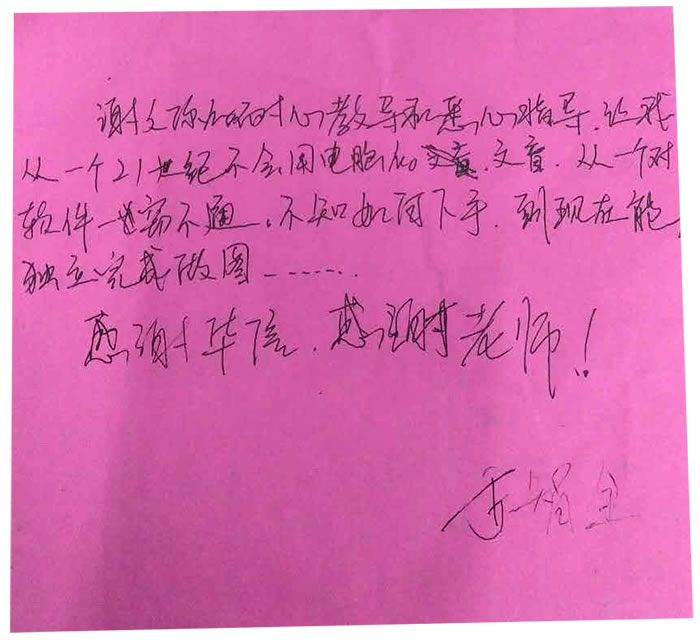 谢文你们的时心教导和悉心指导,让我
从一个21世纪不会用电脑的文盲,从一个对
软件一世窍不通,不知如何下手,到现在能,
独立完成做图-------
感谢华信,感谢老师!